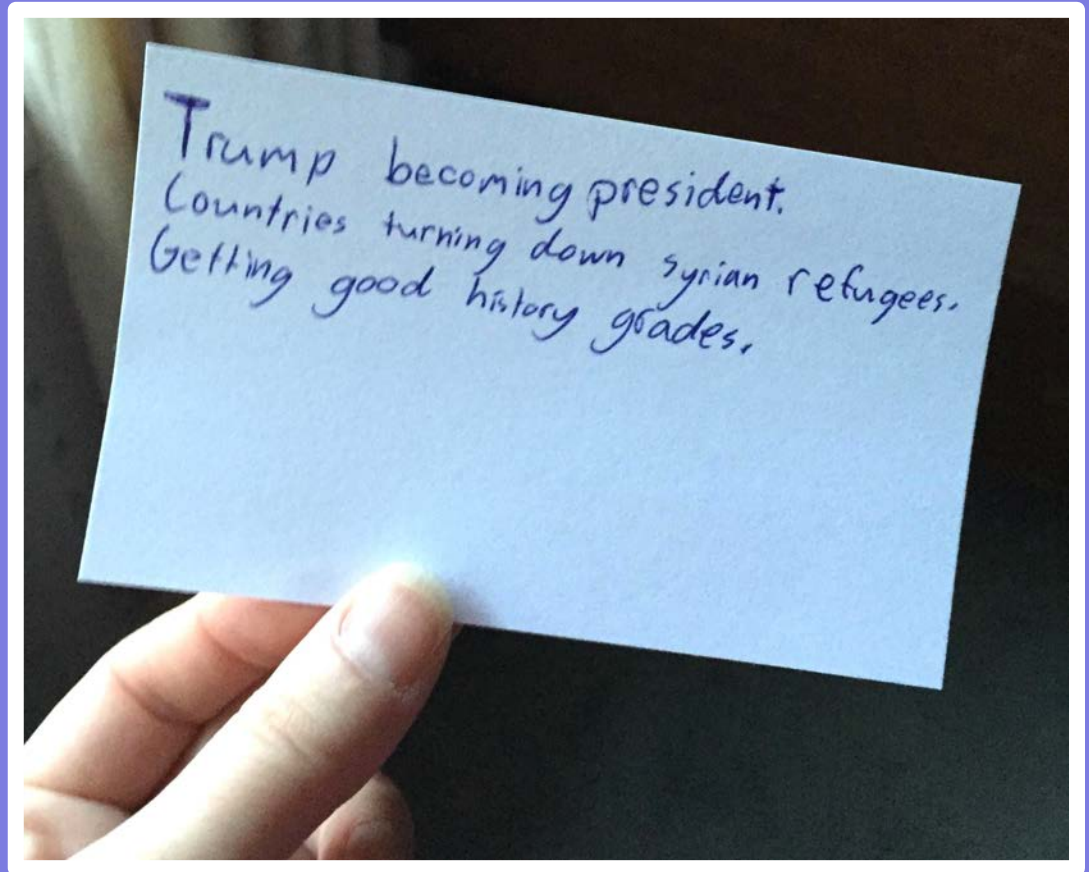 Trump becoming president.
Countries turning down syrian refugees.
Getting good history grades.